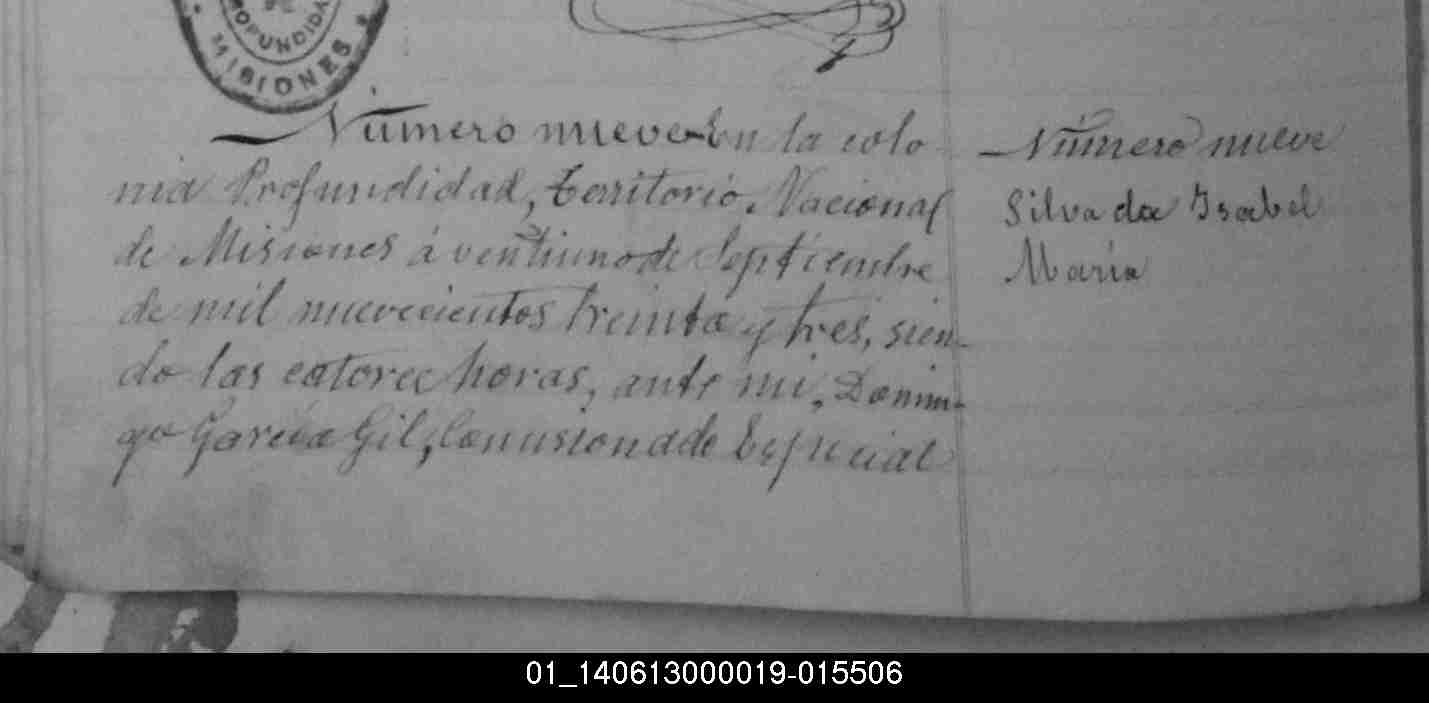 PROFUNDIDA
MISIONES
Número nueve En la colo
nia Profundidad, territorio Nacional
de Misiones á ventiuno de Septiembre
de mil nuevecientos treinta y tres, sien-
do las catorce horas, ante mi, Domin-
go García Gil, Comisionado Especial
Número nueve
Silva da Isabel
María
01_140613000019-015506